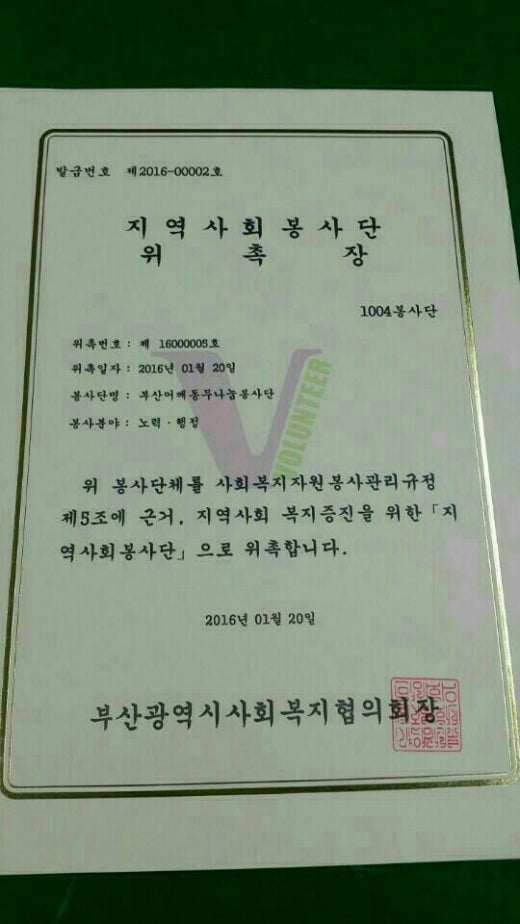 발급번호 제2016-00002호
지역사회봉사단
위촉장
1004봉사단
위촉번호 : 제 16000005호
위촉일자 : 2016년 01월 20일
봉사단명 : 부산어깨동무나눔봉사단
봉사분야 : 노력 · 행정
VOLUNTEER
위 봉사단체를 사회복지자원봉사관리규정
제5조에 근거, 지역사회 복지증진을 위한「지
역사회봉사단」으로 위촉합니다.
2016년 01월 20일
부산광역시사회복지협의회장